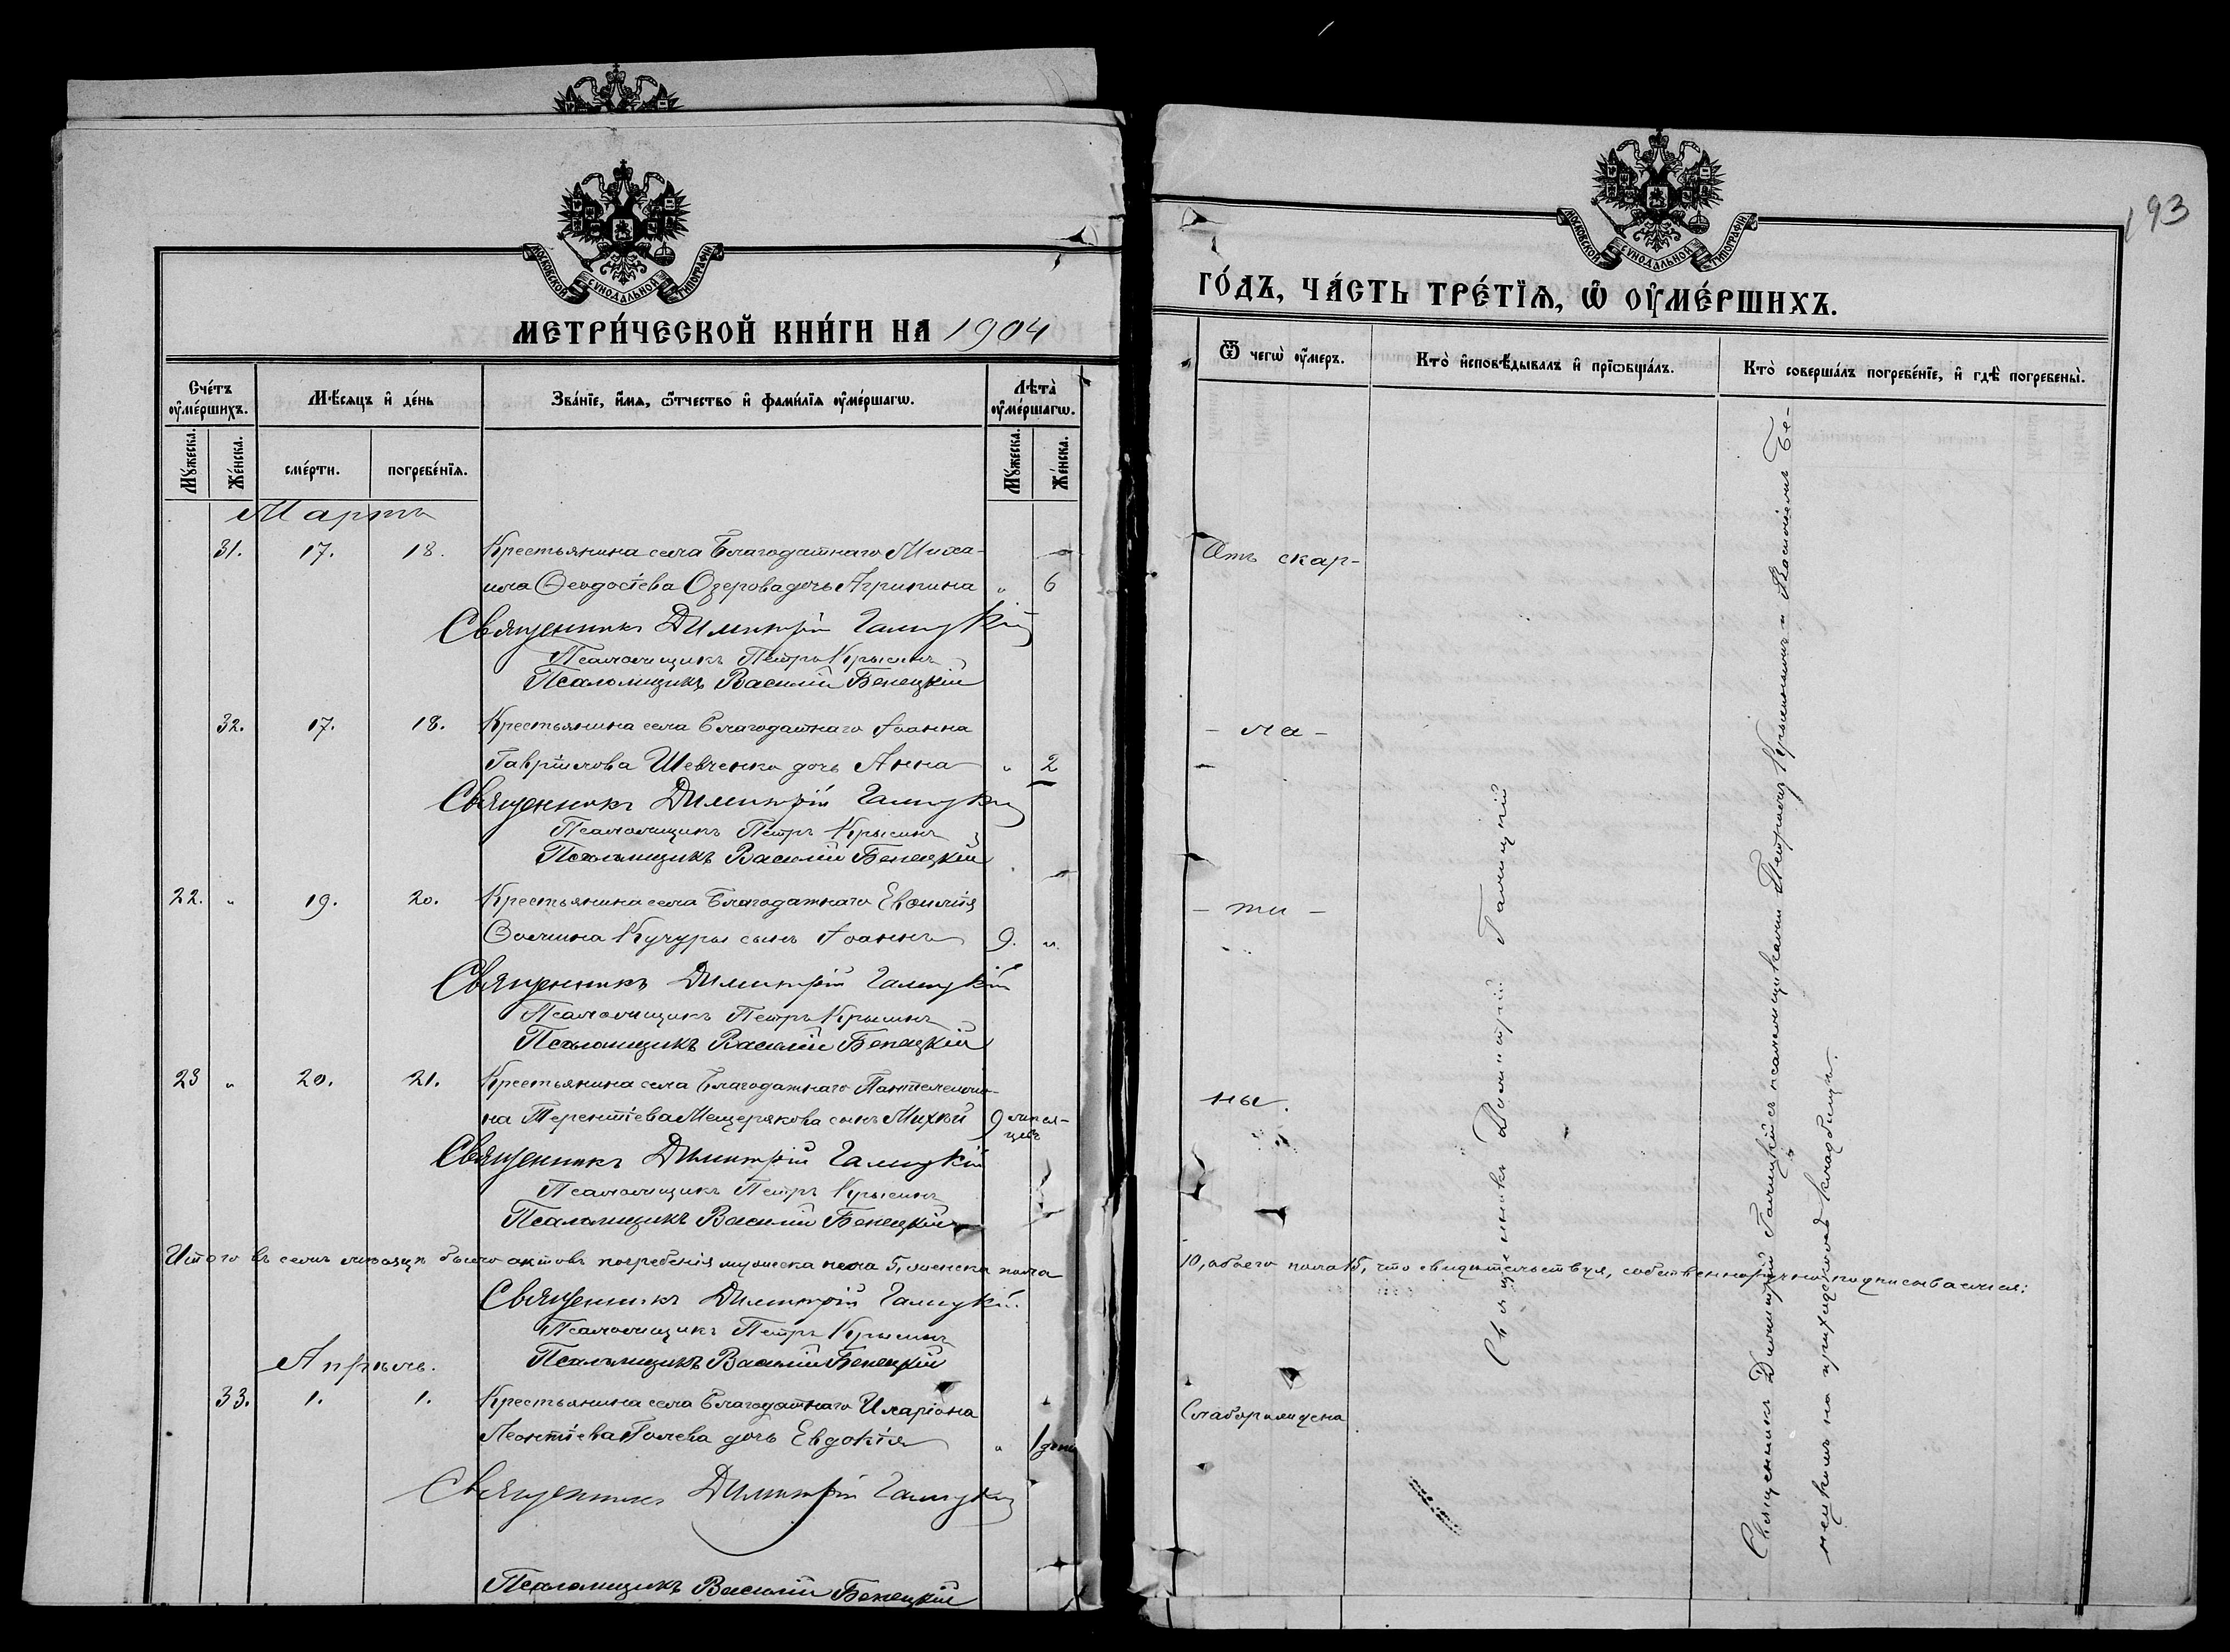 МОСКОВСКОЙ СѴНОДАЛЬНОЙ ТИПОГРАФІИ
МЕТРИ́ЧЕСКОЙ КНИ́ГИ НА 1904
Сче́тъ ᲂу҆ме́ршихъ.
Мꙋ́жеска.
Же́нска.
Мѣ́сяцъ и҆ де́нь
сме́рти.
погребе́нїѧ.
Зва́нїе, и҆́мѧ, ѻ҆́тчество и҆ фами́лїѧ ᲂу҆ме́ршагѡ.
Лѣта̀ ᲂу҆ме́ршагѡ.
Мꙋ́жеска.
Же́нска.
Мартъ
31. 17. 18. Крестьянина села Благодатнаго Миха-
ила Ѳеодосіева Озерова дочь Агрипина „ 6
Священникъ Димитрій Галицкій
Псаломщикъ Петръ Крысинъ
Псаломщикъ Василій Бенецкій
32. 17. 18. Крестьянина села Благодатнаго Іоанна
Гавріилова Шевченко дочь Анна „ 2
Священникъ Димитрій Галицкій
Псаломщикъ Петръ Крысинъ
Псаломщикъ Василій Бенецкій
22. „ 19. 20. Крестьянина села Благодатнаго Евѳимія
Ѳомина Кучуры сынъ Іоаннъ 9. „
Священникъ Димитрій Галицкій
Псаломщикъ Петръ Крысинъ
Псаломщикъ Василій Бенецкій
23 „ 20. 21. Крестьянина села Благодатнаго Пантелеимо-
на Терентіева Мещерякова сынъ Михѣй 9 мѣся-
цевъ
Священникъ Димитрій Галицкій
Псаломщикъ Петръ Крысинъ
Псаломщикъ Василій Бенецкій
Итого въ семъ мѣсяцѣ было актовъ погребенія мужеска пола 5, женска пола
Священникъ Димитрій Галицкій
Псаломщикъ Петръ Крысинъ
Псаломщикъ Василій Бенецкій
Апрѣль.
33. 1. 1. Крестьянина села Благодатнаго Иларіона
Леонтіева Голева дочь Евдокія „ 1 день
Священникъ Димитрій Галицкій
Псаломщикъ Василій Бенецкій
193
МОСКОВСКОЙ СѴНОДАЛЬНОЙ ТИПОГРАФІИ
ГО́ДЪ, ЧА́СТЬ ТРЕ́ТЇѦ, Ѡ҆ ОУ҆МЕ́РШИХЪ.
Ѿ чегѡ̀ ᲂу҆́меръ.
Кто̀ и҆сповѣ́дывалъ и҆ прїѡбща́лъ.
Кто̀ соверша́лъ погребе́нїе, и҆ гдѣ̀ погребены̀.
Отъ скар-
- ла -
- ти -
ны.
Священникъ Димитрій Галицкій
Священникъ Димитрій Галицкій съ псаломщиками Петромъ Крысинымъ и Василіемъ Бе-
нецкимъ на приходскомъ кладбищѣ.
10, обоего пола 15, что свидѣтельствуя, собственноручно подписываемся:
Слаборождена